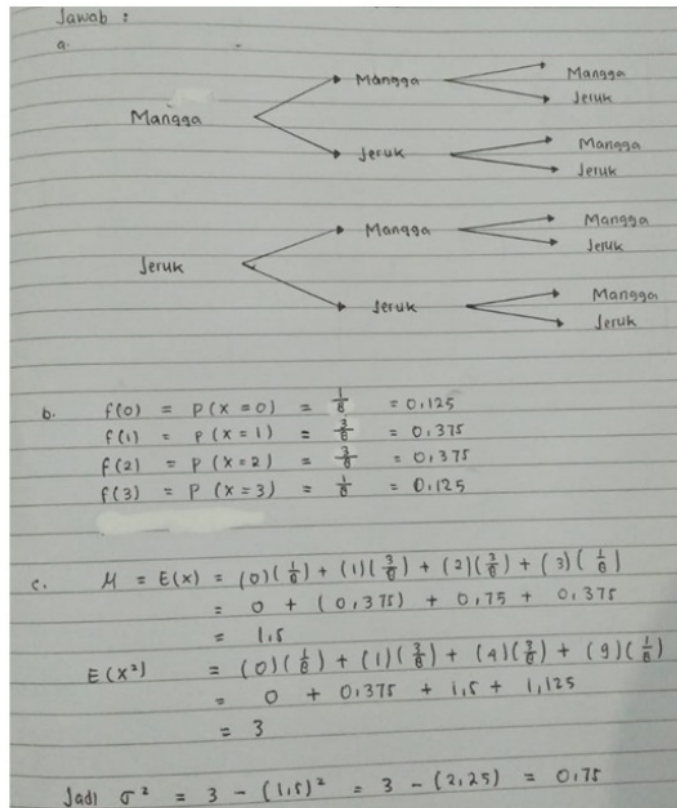 Jawab :
a.
Mangga
Jeruk
Mangga
Mangga
Jeruk
Mangga
Jeruk
Mangga
Jeruk
Mangga
Jeruk
Jeruk
Mangga
Jeruk
b. f(0) = P(x=0) = 1/8 = 0,125
f(1) = P(x=1) = 3/8 = 0,375
f(2) = P(x=2) = 3/8 = 0,375
f(3) = P(x=3) = 1/8 = 0,125
c. M = E(x) = (0)(1/8) + (1)(3/8) + (2)(3/8) + (3)(1/8)
= 0 + (0,375) + 0,75 + 0,375
= 1,5
E(x²) = (0)(1/8) + (1)(3/8) + (4)(3/8) + (9)(1/8)
= 0 + 0,375 + 1,5 + 1,125
= 3
Jadi σ² = 3 - (1,5)² = 3 - (2,25) = 0,75